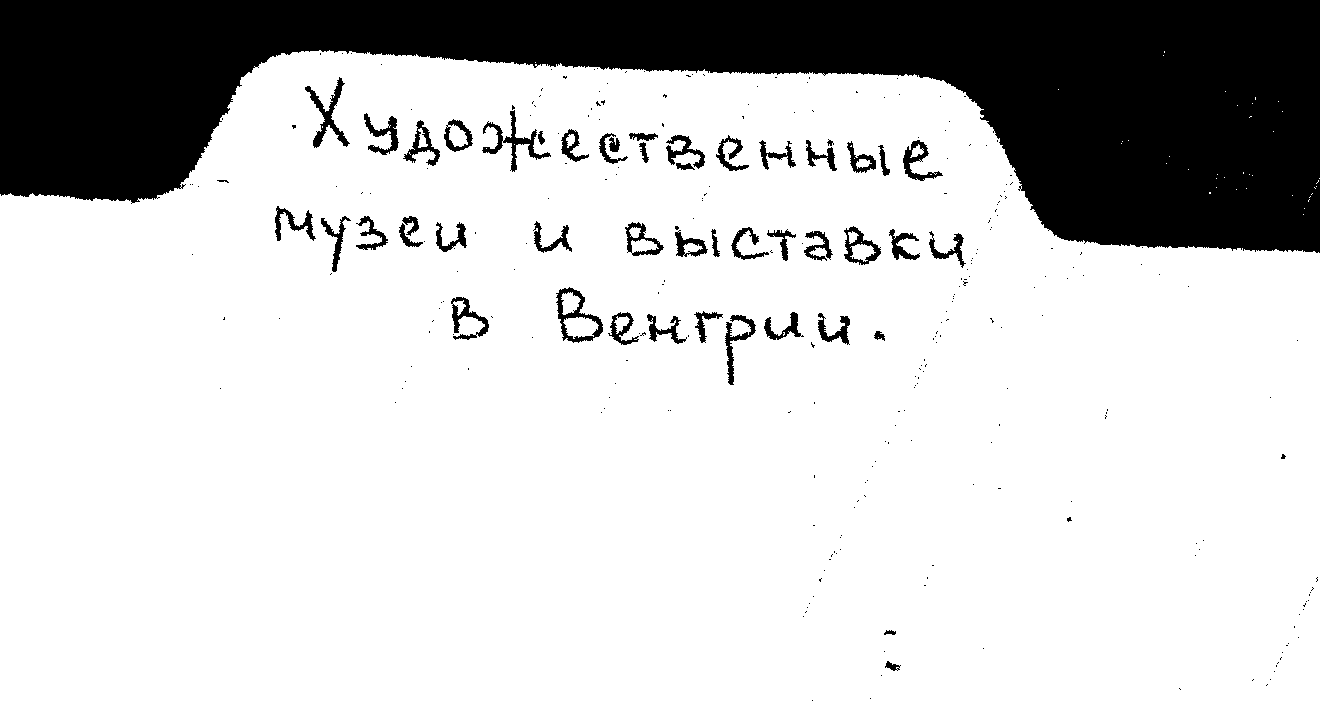 Художественные
музеи и выставки
в Венгрии.